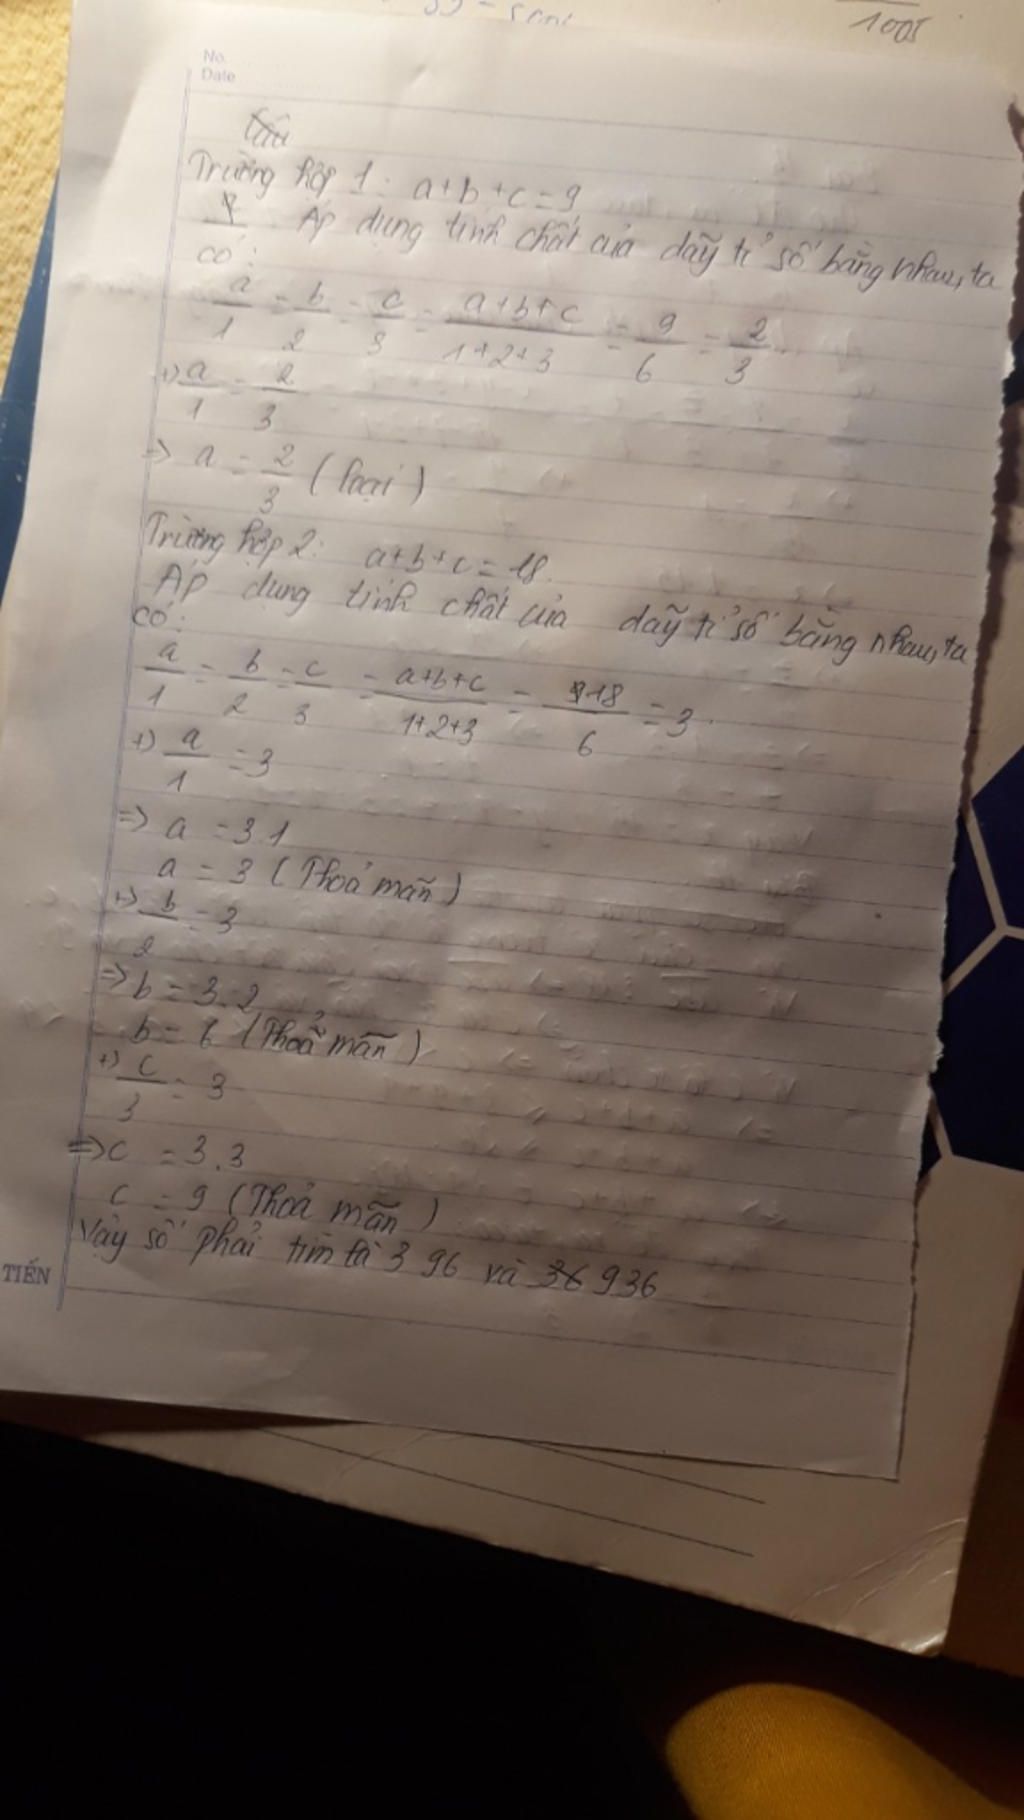 1005
No.
Date
Trường hợp 1: a+b+c=9
Áp dụng tính chất của dãy tỉ số bằng nhau, ta
có:
a/1 = b/2 = c/3 = a+b+c/1+2+3 = 9/6 = 2/3
+) a/1 = 2/3
=> a = 2/3 (loại)
Trường hợp 2: a+b+c=18
Áp dụng tính chất của dãy tỉ số bằng nhau, ta
có:
a/1 = b/2 = c/3 = a+b+c/1+2+3 = 18/6 = 3
+) a/1 = 3
=> a = 3.1
a = 3 (Thoả mãn)
+) b/2 = 3
=> b = 3.2
b = 6 (Thoả mãn)
+) c/3 = 3
=> c = 3.3
c = 9 (Thoả mãn)
Vậy số phải tìm là 396 và 936
TIẾN